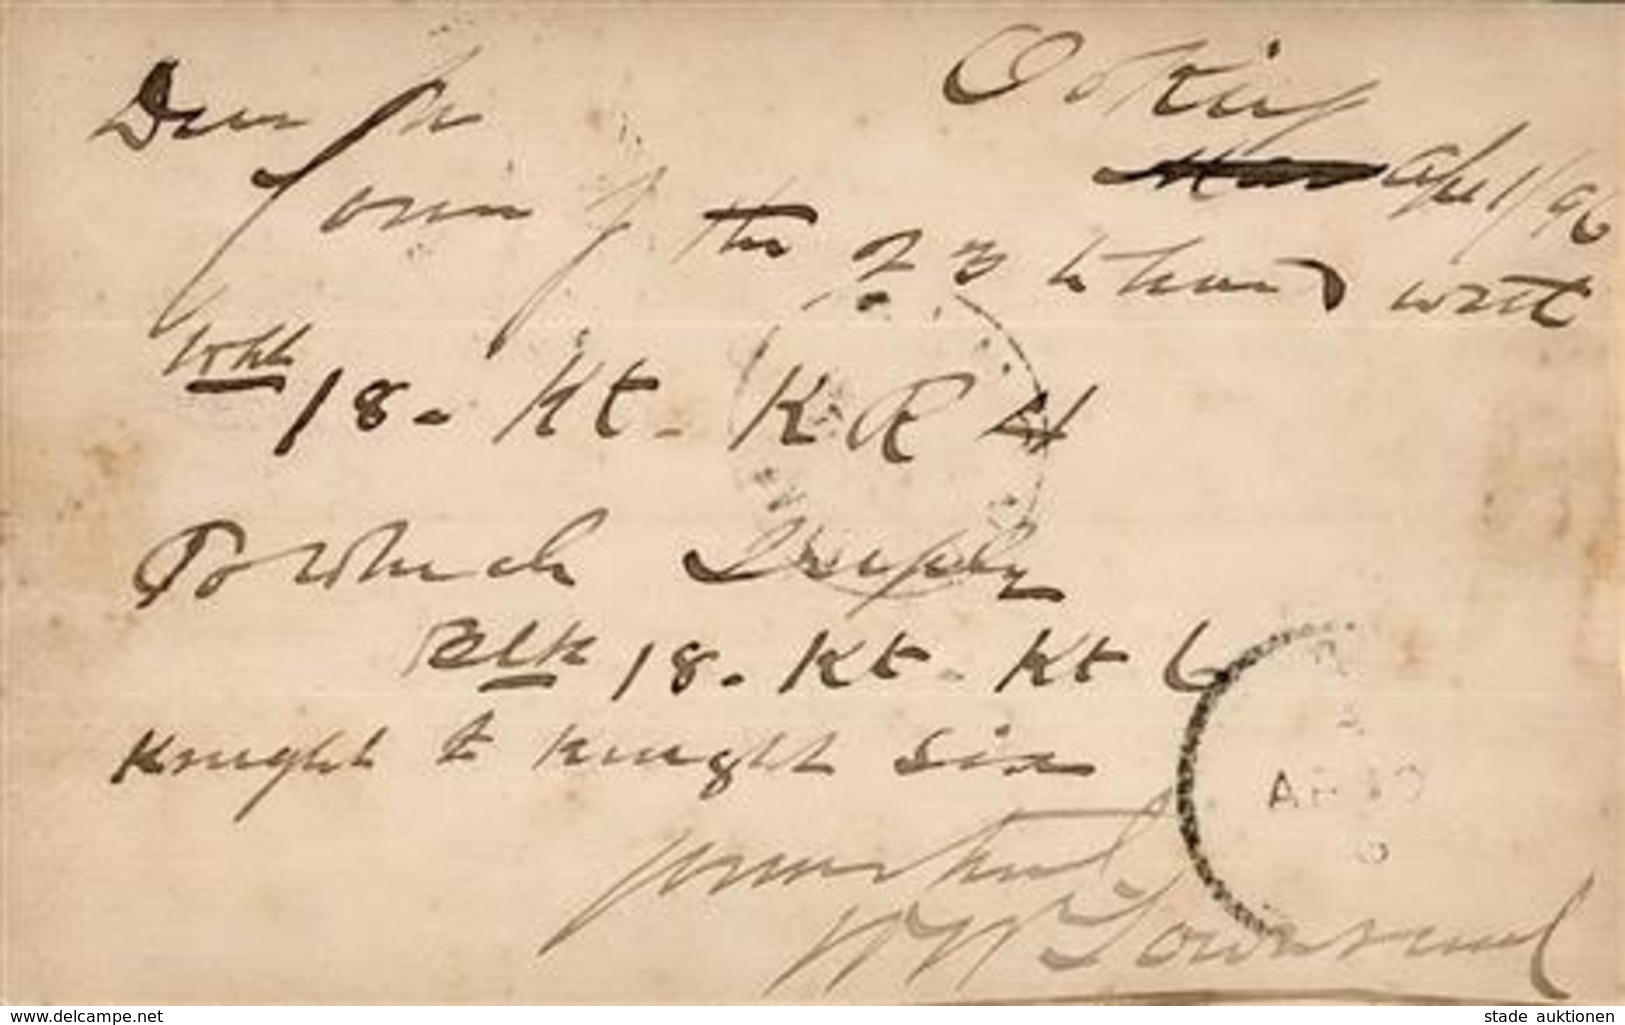 Otkiaf
Dear Sir Mar Apl 1/96
Yours of the 23 to hand with
Wht 18 - Kt - K R 4
To Which I reply
Blk 18 - Kt - Kt 6
Knight to Knight Six
Yours truly
W W Townsend
AP
www.delcampe.net
stade auktionen